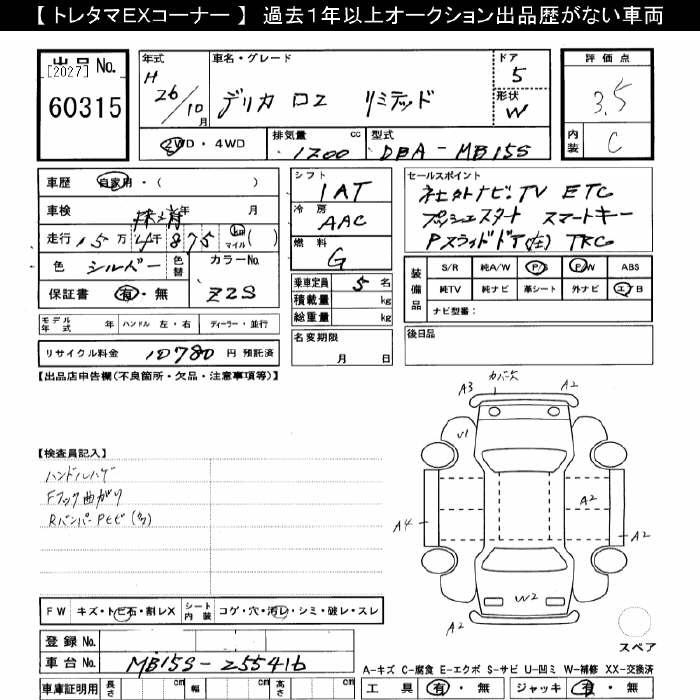 【 トレタマEXコーナー 】 過去1年以上オークション出品歴がない車両
出品No.
[2027]
60315
年式
H 26/10月
車名・グレード
デリカ D2 リミテッド
ドア
5
形状
W
2WD・4WD
排気量 cc
1200
型式
DBA-MB15S
評価点
3.5
内装
C
車歴 自家用・( )
車検 抹消 年 月
走行 15万4千875 km マイル ( )
色 シルバー 色替
カラーNo.
Z2S
保証書 有・無
シフト
1AT
冷房
AAC
燃料
G
乗車定員 5 名
積載量 kg
総重量 kg
セールスポイント
社外ナビ.TV ETC
プッシュスタート スマートキー
Pスライドドア(左) TRC
装備品
S/R 純A/W P/S P/W ABS
純TV 純ナビ 革シート 外ナビ エ/B
ナビ型番:
モデル年式 年 ハンドル 左・右 ディーラー・並行
リサイクル料金 10780 円 預託済
名変期限
月 日
後日品
【出品店申告欄(不良箇所・欠品・注意事項等)】
【検査員記入】
ハンドルハゲ
Fフック曲がり
RバンパーPトビ
A3
A2
U1
A2
A4
A2
W2
A2
スペア
FW キズ・トビ石・割レX
シート内装 コゲ・穴・汚レ・シミ・破レ・スレ
登録No.
車台No. MB15S-255416
車庫証明用 長さ cm 幅 cm 高さ cm
A-キズ C-腐食 E-エクボ S-サビ U-凹ミ W-補修 XX-交換済
工具 有・無 ジャッキ 有・無